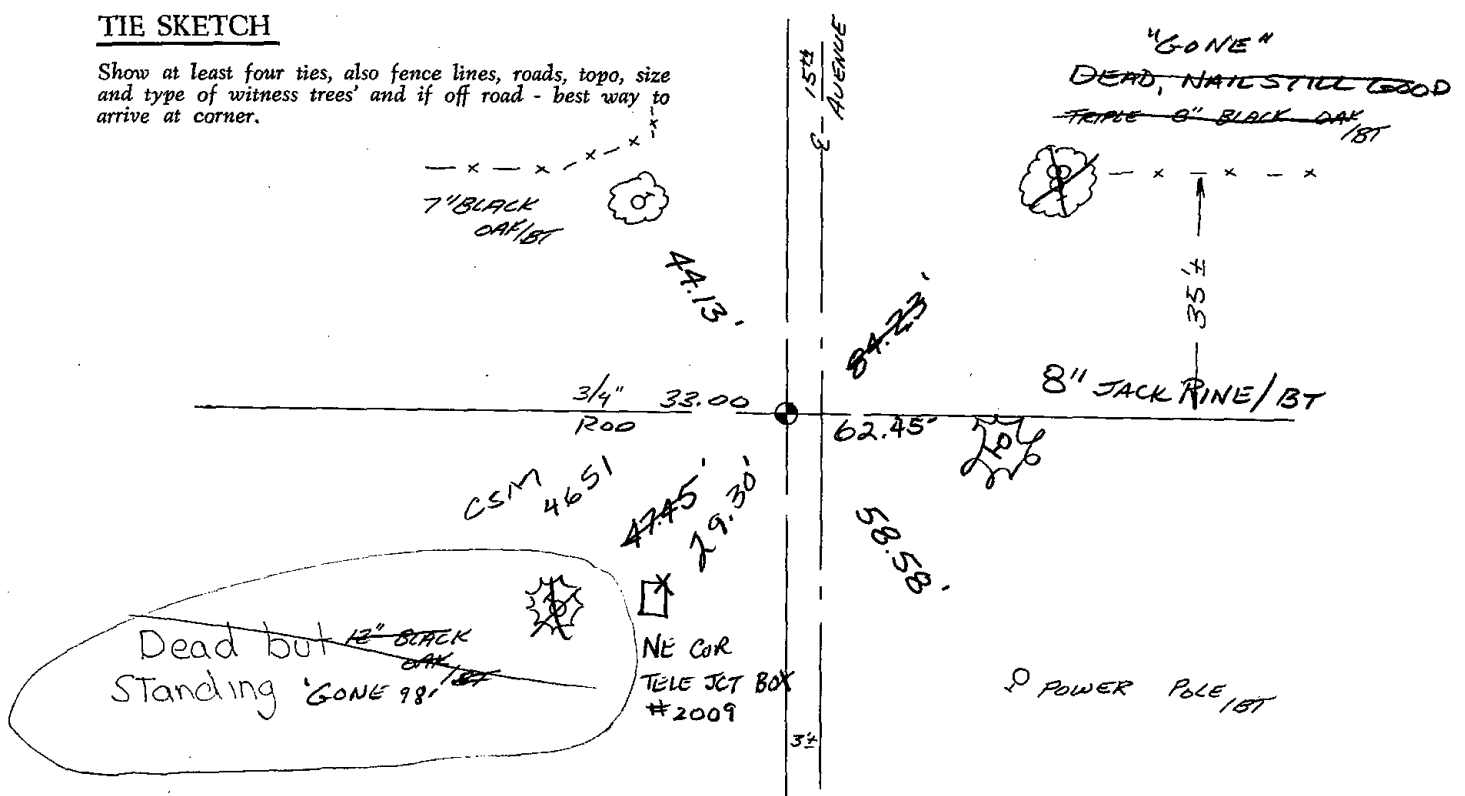 TIE SKETCH
Show at least four ties, also fence lines, roads, topo, size
and type of witness trees' and if off road - best way to
arrive at corner.
15th
AVENUE
"GONE"
DEAD, NAIL STILL GOOD
TRIPLE 8" BLACK OAK
/BT
7" BLACK
OAK/BT
44.13'
84.23'
35'±
8" JACK PINE/BT
3/4" 33.00
ROD
62.45'
CSM
4651
47.45'
29.30'
58.58'
Dead but 12" BLACK
OAK
/BT
Standing 'GONE 98'
NE COR
TELE JCT BOX
#2009
POWER POLE/BT
3'±